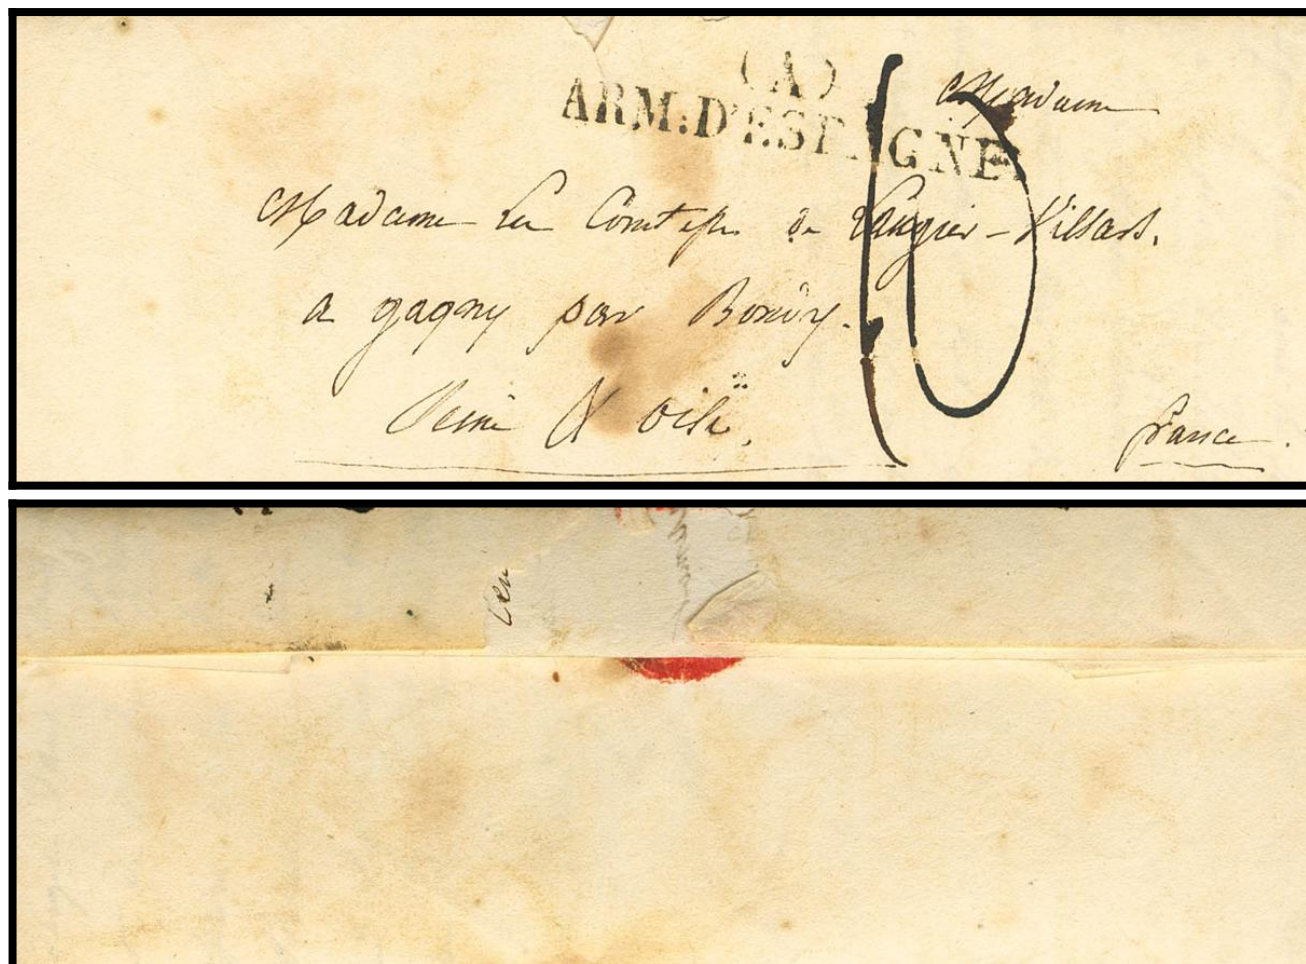 (A)
ARM: D'ESPAGNE
10
Madame
Madame La Comtesse de Laugier-Villars.
a gagny par Bondy.
Seine & Oise.
france.